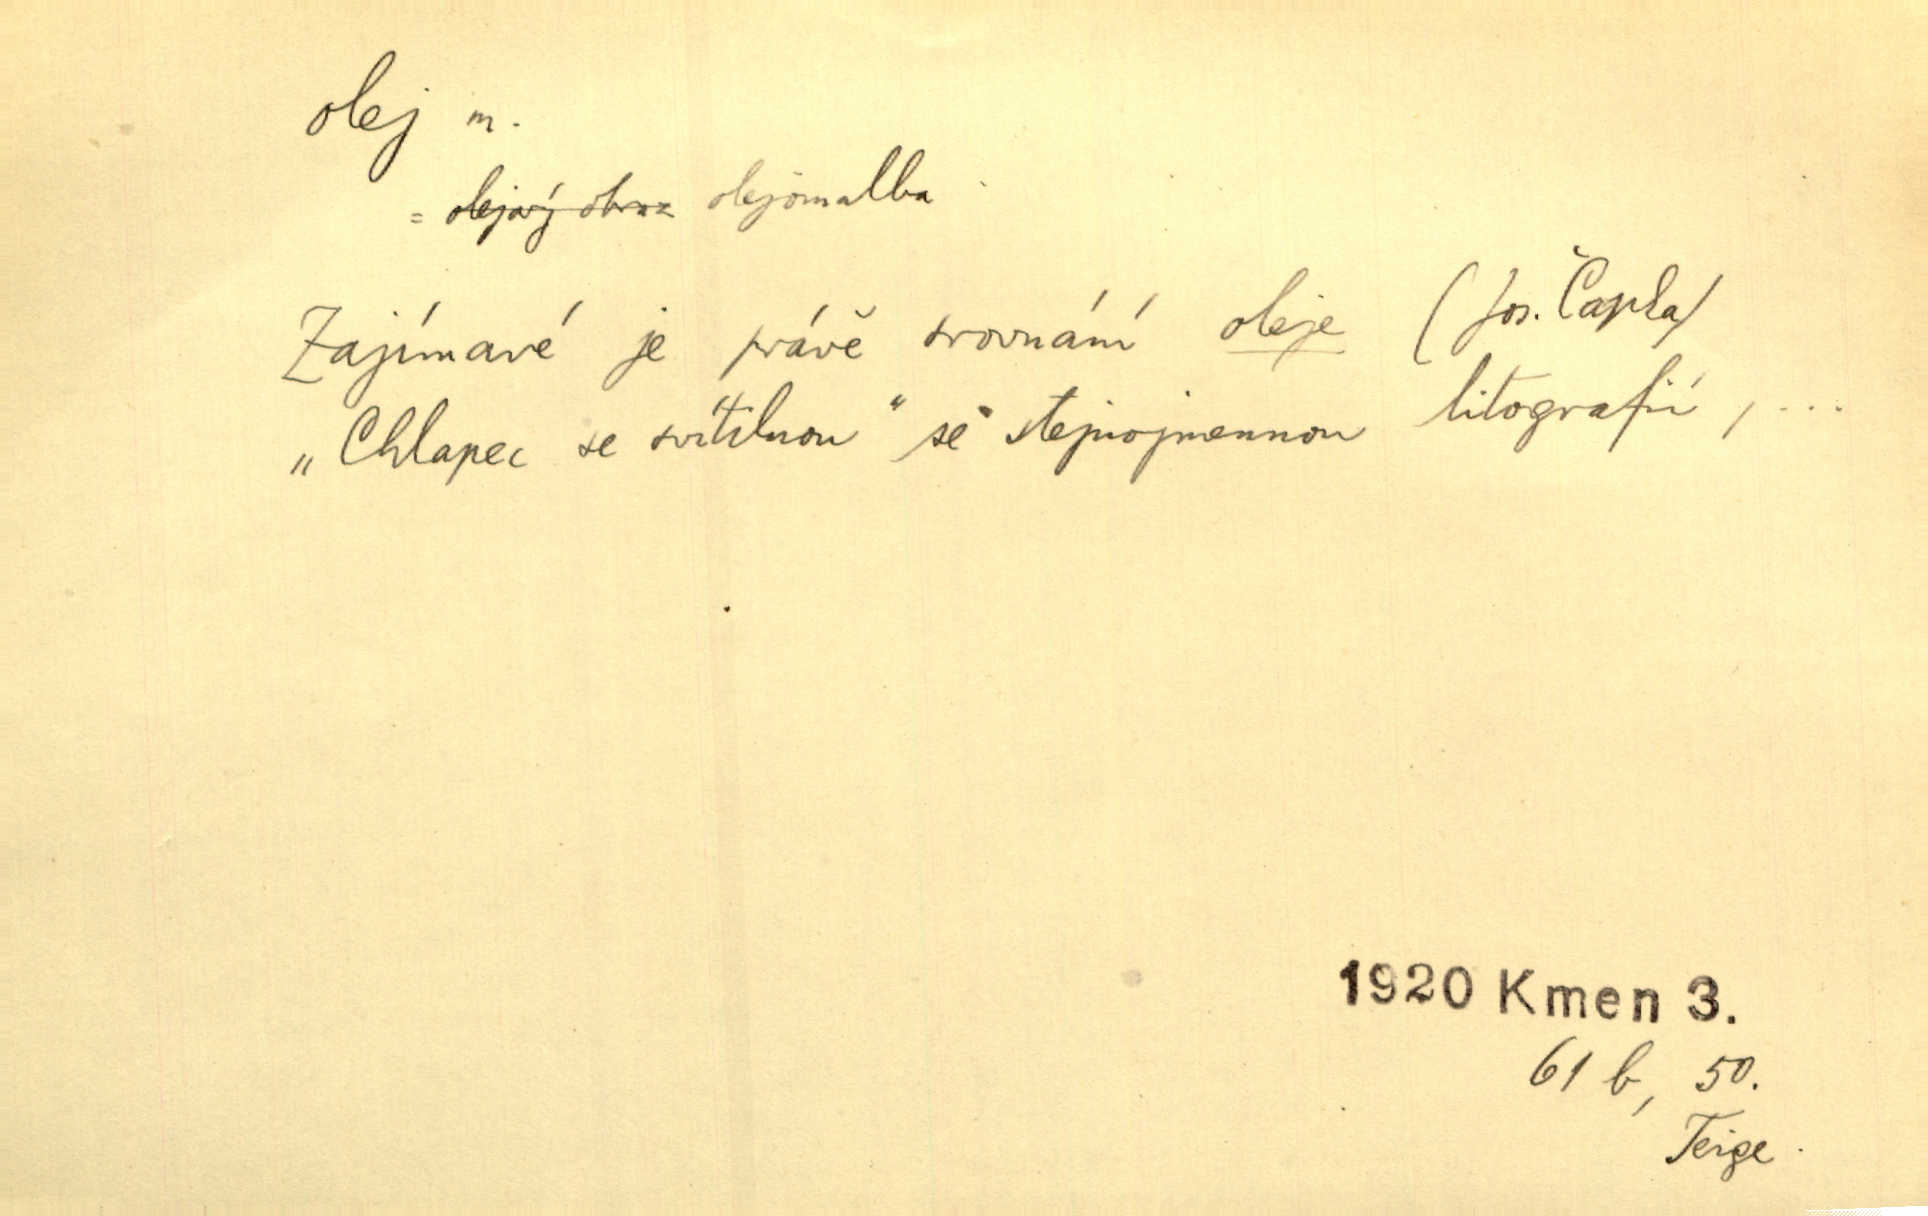 olej m.
= olejový obraz olejomalba
Zajímavé je právě srovnání oleje (Jos. Čapka)
„Chlapec se svítilnou“ se stejnojmennou litografií, ...
1920 Kmen 3.
61 b, 50.
Teige.